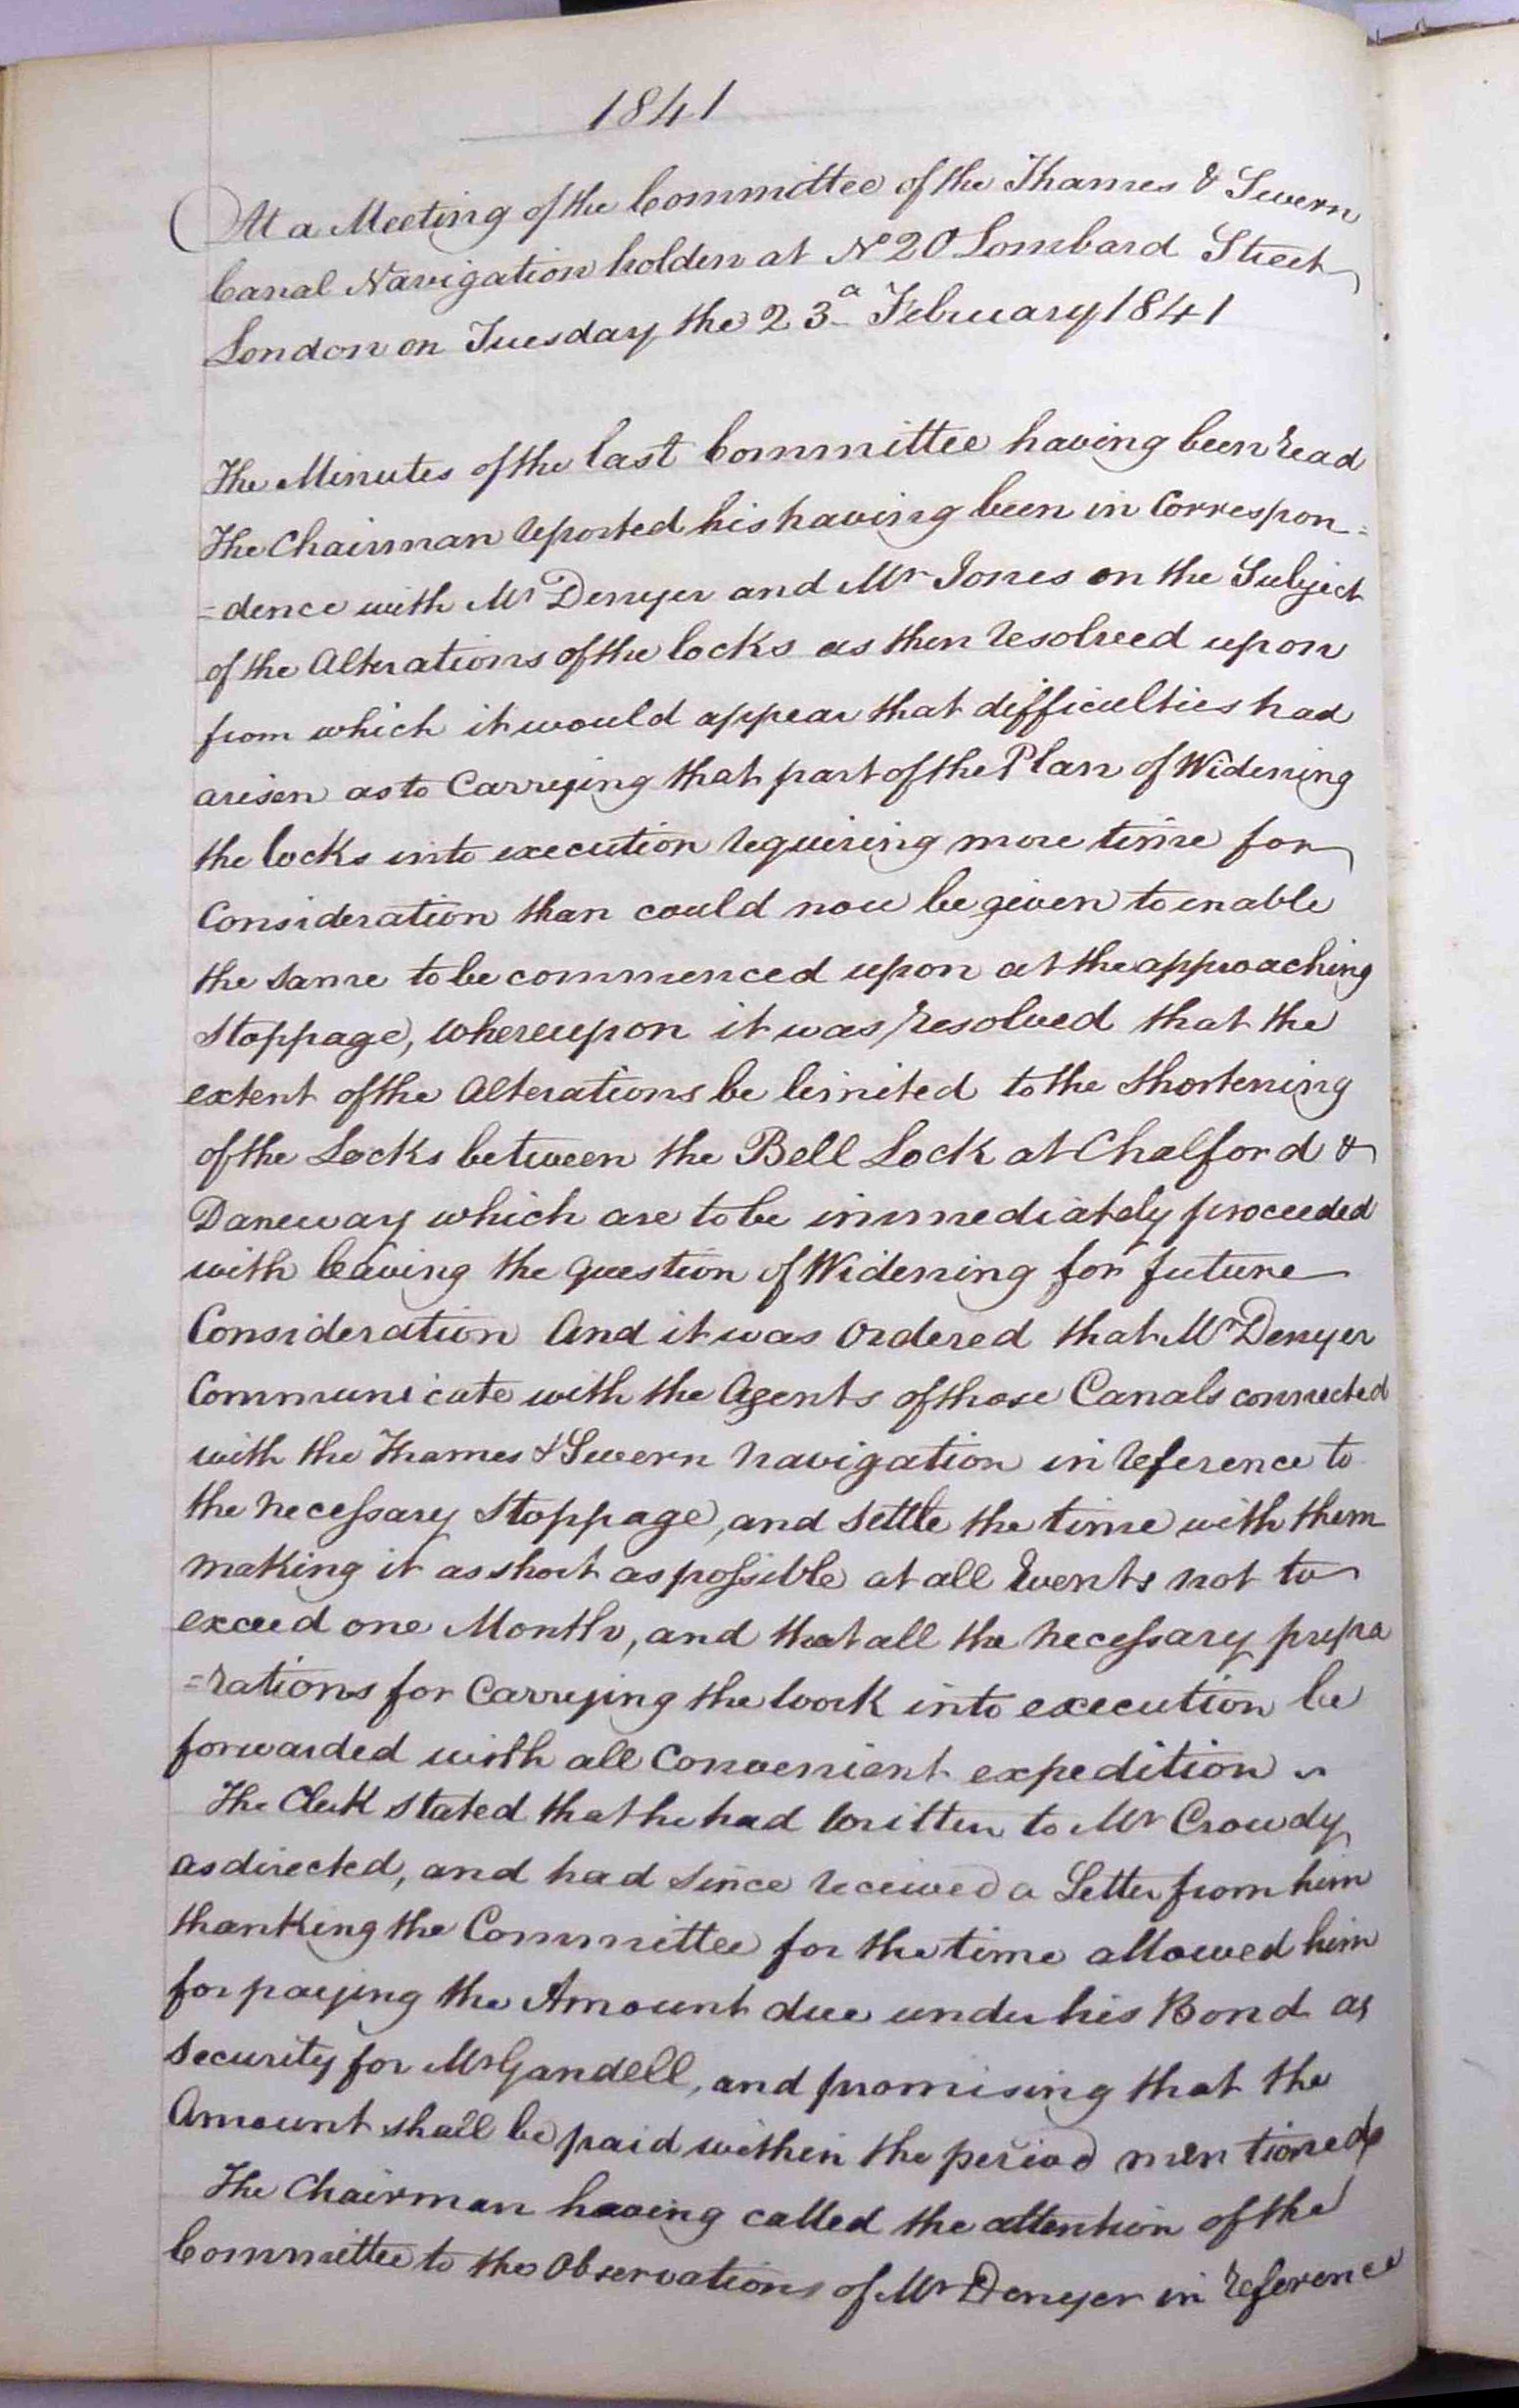 1841
At a Meeting of the Committee of the Thames & Severn
Canal Navigation holden at No 20 Lombard Street
London on Tuesday the 23d February 1841
The Minutes of the last Committee having been read
The Chairman reported his having been in Correspon=
=dence with Mr Denyer and Mr Jones on the Subject
of the Alterations of the locks as then resolved upon
from which it would appear that difficulties had
arisen as to Carrying that part of the Plan of Widening
the locks into execution requiring more time for
Consideration than could now be given to enable
the same to be commenced upon at the approaching
Stoppage, whereupon it was resolved that the
extent of the Alterations be limited to the Shortening
of the Locks between the Bell Lock at Chalford &
Daneway which are to be immediately proceeded
with leaving the question of Widening for future
Consideration And it was Ordered that Mr Denyer
Communicate with the Agents of those Canals connected
with the Thames & Severn Navigation in reference to
the necessary Stoppage, and settle the time with them
making it as short as possible at all Events not to
exceed one Month, and that all the necessary prepa
=rations for Carrying the work into execution be
forwarded with all Convenient expedition
The Clerk stated that he had written to Mr Crowdy
as directed, and had since received a Letter from him
thanking the Committee for the time allowed him
for paying the Amount due under his Bond as
Security for Mr Gandell, and promising that the
Amount shall be paid within the period mentioned
The Chairman having called the attention of the
Committee to the Observations of Mr Denyer in reference